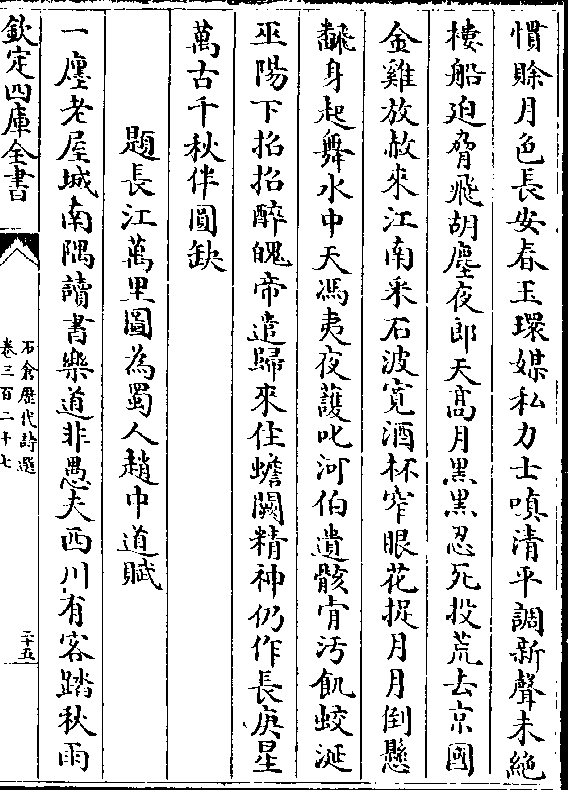 慣賒月色長安春玉環媒私力士嗔清平調新聲未絶
樓船迫脅飛胡塵夜郎天髙月黑黑忍死投荒去京國
金雞放赦來江南采石波寛酒杯窄眼花捉月月倒懸
飜身起舞水中天馮夷夜䕶叱河伯遺骸肯汚飢蛟涎
巫陽下招招醉魄帝遣歸來住蟾闕精神仍作長庚星
萬古千秋伴圓缺
題長江萬里圖為蜀人趙巾道賦
一廛老屋城南隅讀書樂道非愚夫西川有客踏秋雨
欽定四庫全書
石倉歷代詩選
卷三百二十七
二十五